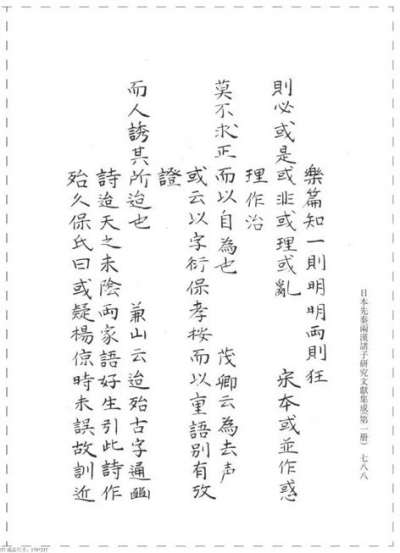 日本先秦兩漢諸子研究文獻集成(第一册) 七八八
樂篇知一則明明両則狂
則必或是或非或理或亂 宋本或並作惑
理作治
莫不求正而以自為也 茂卿云為去声
或云以字衍保孝桉而以重語別有攷
證
而人誘其所迨也 兼山云迨殆古字通豳
詩迨天之未陰雨家語好生引此詩作
殆久保氏曰或疑楊倞時未誤故訓近